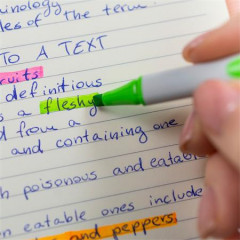 minology
les of the term.
TO A TEXT
ruits
definitions
s a fleshy
d from a
and containing one
h poisonous and eatable
n eatable ones include
and peppers.